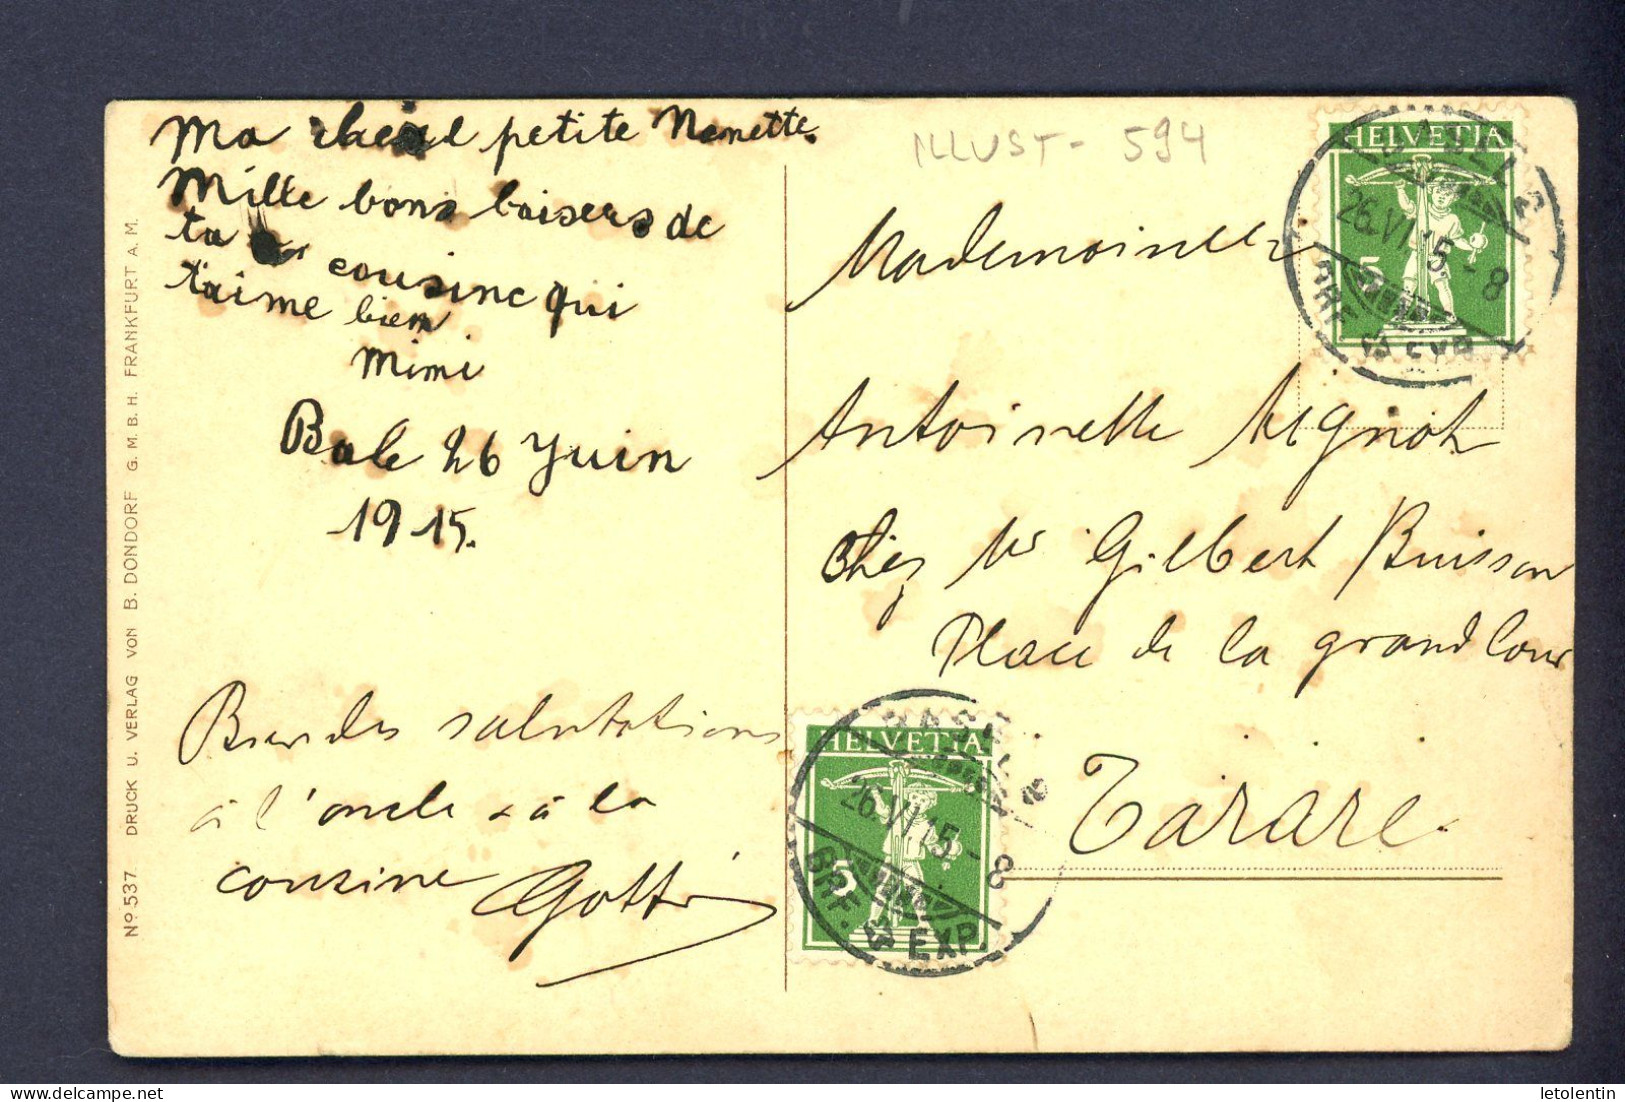 Ma chere petite Nenette.
Mille bons baisers de
ta cousine qui
t'aime bien
Mimi
Bale 26 Juin
1915.
salutations
à l'oncle & à la
cousine
ILLUST - 594
Mademoiselle
Antoinette Mignot
Chez Mr Gilbert Buisson
Place de la grand Cour
Tarare
HELVETIA
5
26.VI.15 - 8
BRF. EXP.
HELVETIA
5
26.VI.15 - 8
BRF. EXP.
Nº 537 DRUCK U. VERLAG VON B. DONDORF G. M. B. H. FRANKFURT A. M.
letolentin